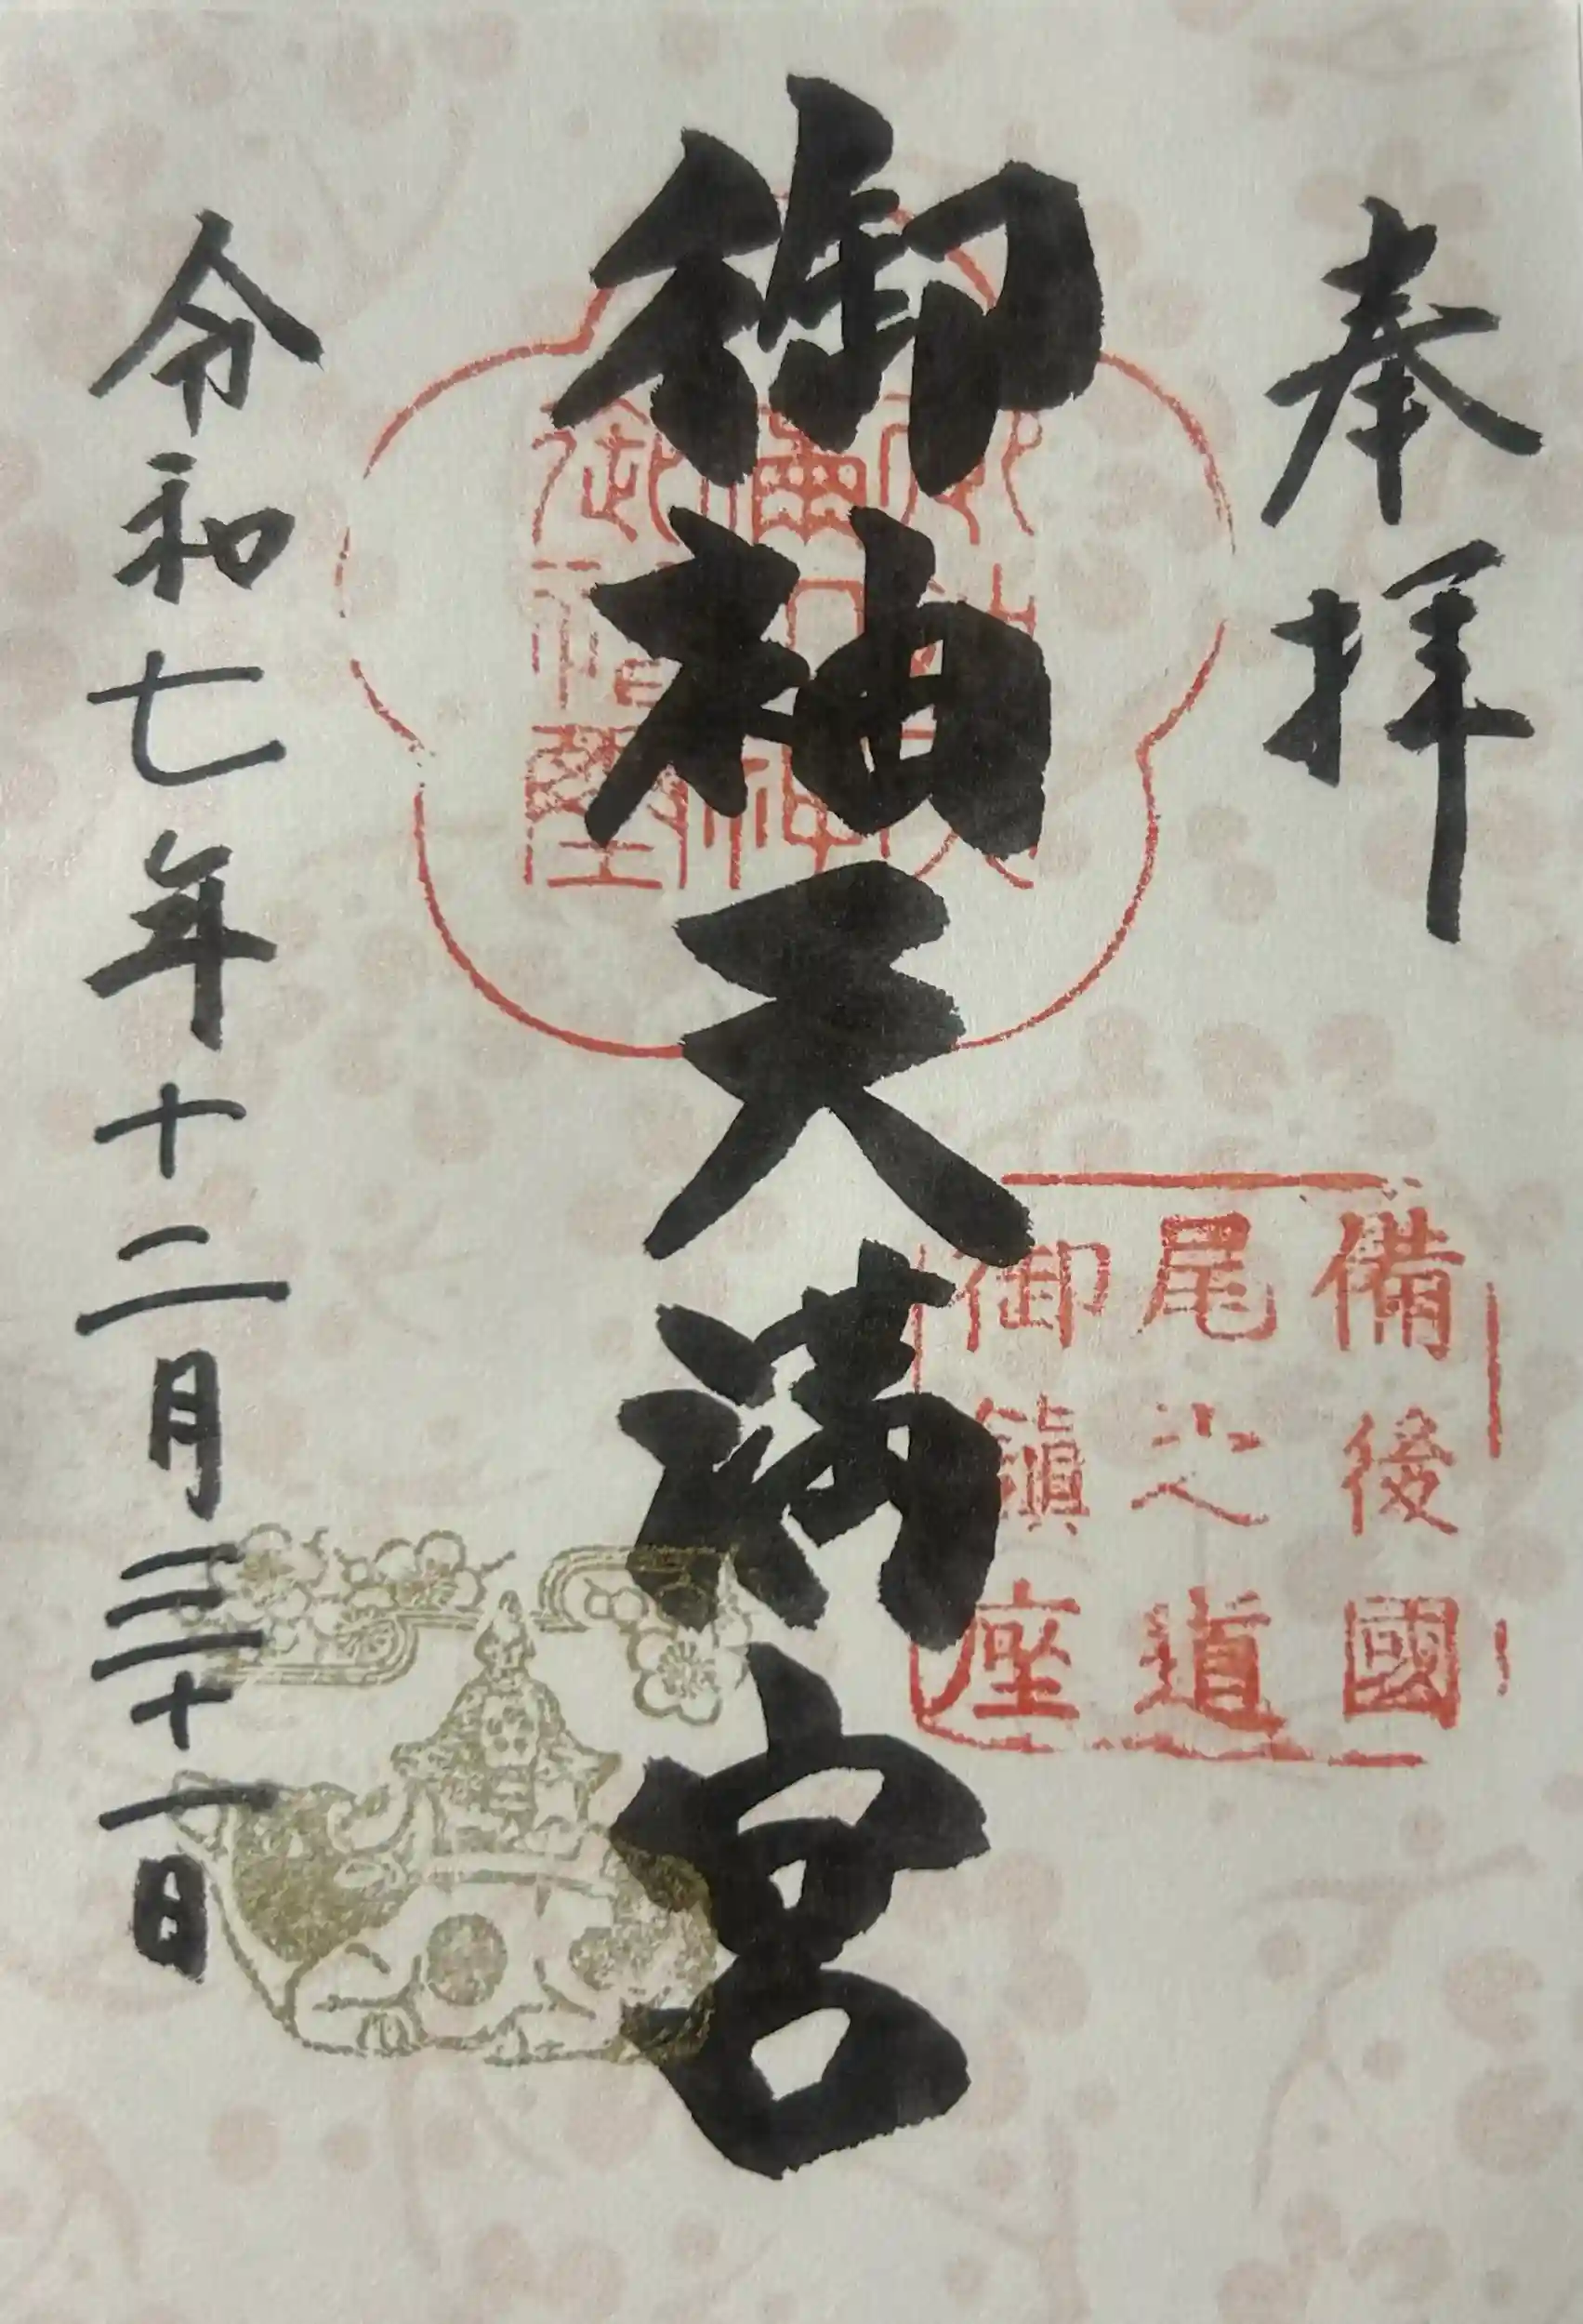 奉拝
備後國
尾之道
御鎮座
御袖天満宮
令和七年十二月三十一日